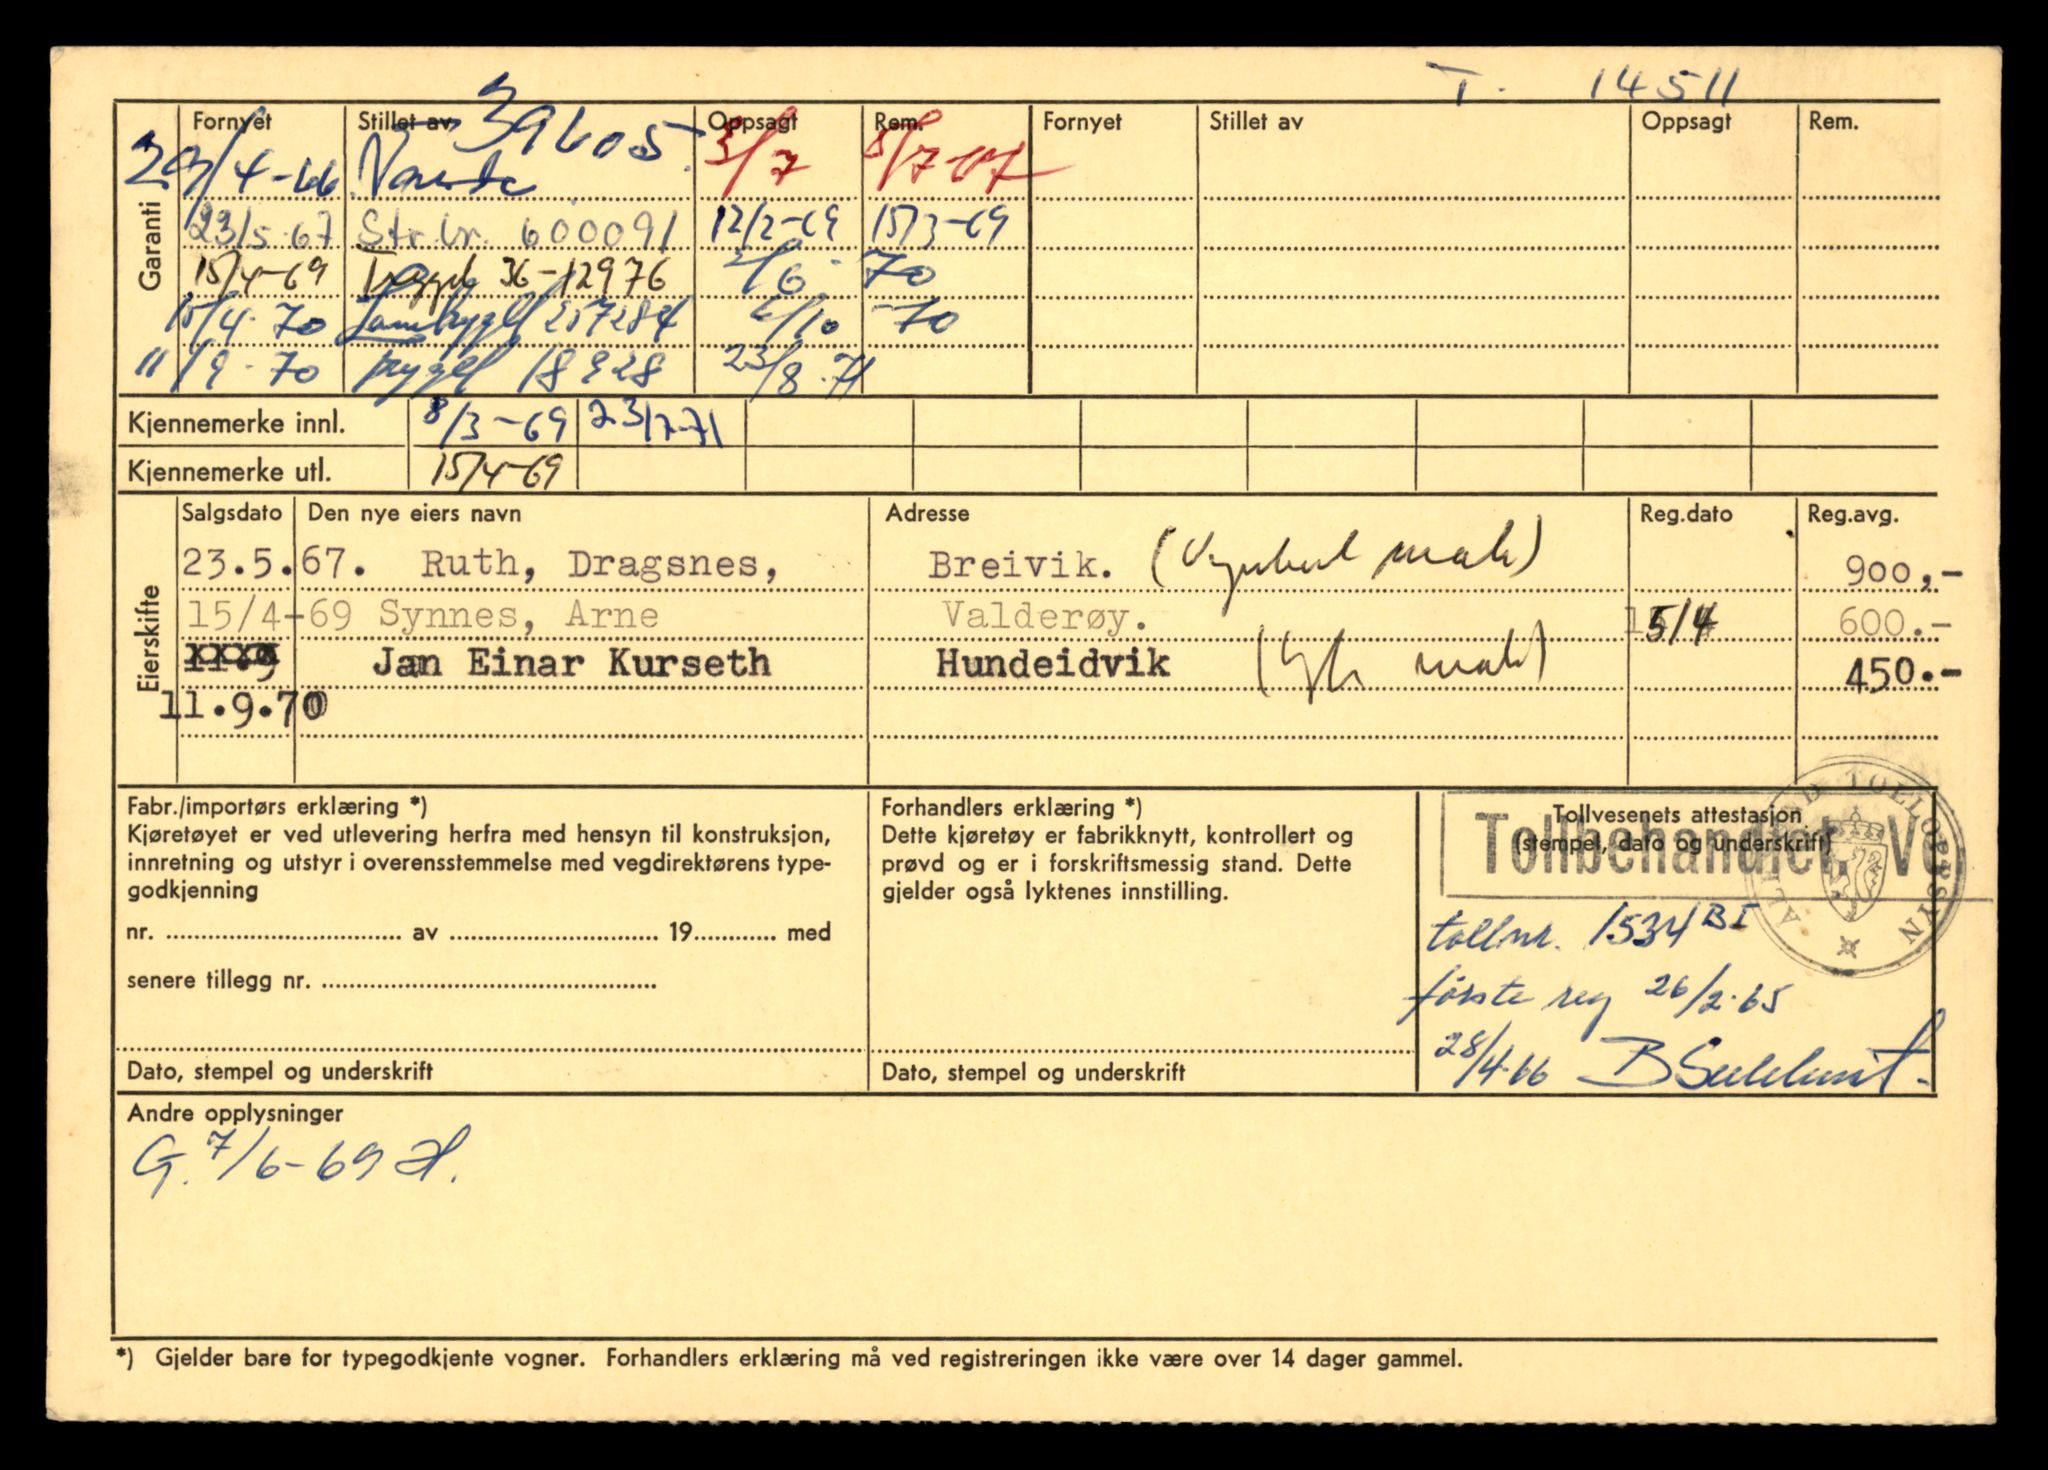 T. 14511
Fornyet Stillet av Oppsagt Rem. Fornyet Stillet av Oppsagt Rem.
39605
29/4-66 3/7
Garanti
23/5-67 Str. br. 600091 12/2-69 15/3-69
15/4-69 36-12976 2/6. 70
15/4-70 257284 6/10 -70
11/9-70 18928 23/8.71
Kjennemerke innl. 8/3-69 23/7-71
Kjennemerke utl. 15/4-69
Eierskifte
Salgsdato Den nye eiers navn Adresse Reg.dato Reg.avg.
23.5.67. Ruth, Dragsnes, Breivik. 900,-
15/4-69 Synnes, Arne Valderøy. 15/4 600.-
Jan Einar Kurseth Hundeidvik 450.-
11.9.70
Fabr./importørs erklæring *)
Kjøretøyet er ved utlevering herfra med hensyn til konstruksjon,
innretning og utstyr i overensstemmelse med vegdirektørens type-
godkjenning
nr. av 19 med
senere tillegg nr.
Dato, stempel og underskrift
Forhandlers erklæring *)
Dette kjøretøy er fabrikknytt, kontrollert og
prøvd og er i forskriftsmessig stand. Dette
gjelder også lyktenes innstilling.
Dato, stempel og underskrift
Tollvesenets attestasjon
(stempel, dato og underskrift)
Tollbehandlet.
tollnr. 1534 BI
første reg 26/2-65
28/4-66
Andre opplysninger
G. 7/6-69 H.
*) Gjelder bare for typegodkjente vogner. Forhandlers erklæring må ved registreringen ikke være over 14 dager gammel.